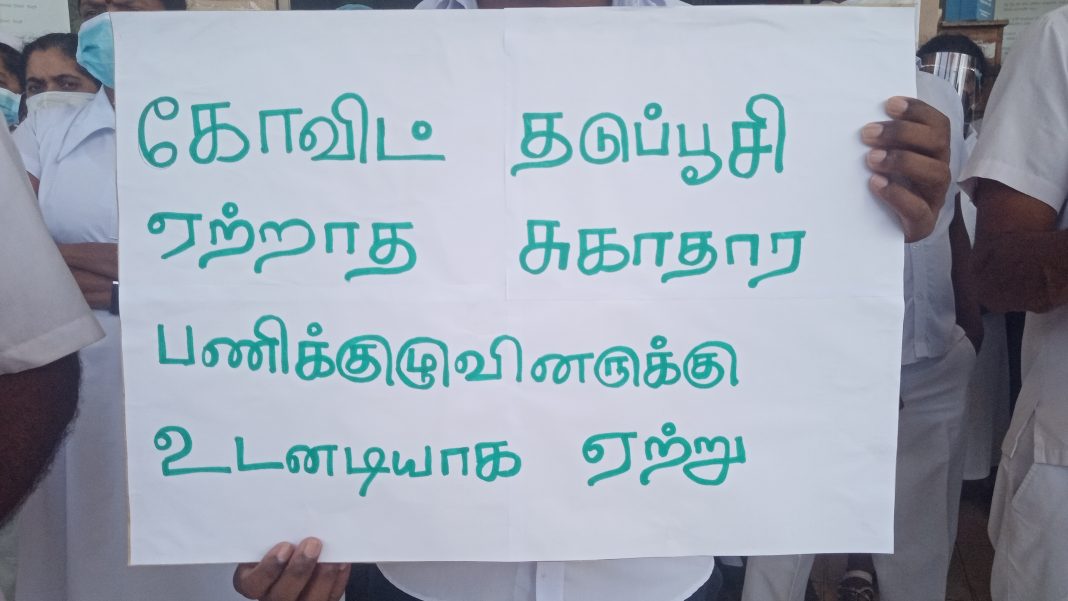 கோவிட் தடுப்பூசி
ஏற்றாத சுகாதார
பணிக்குழுவினருக்கு
உடனடியாக ஏற்று